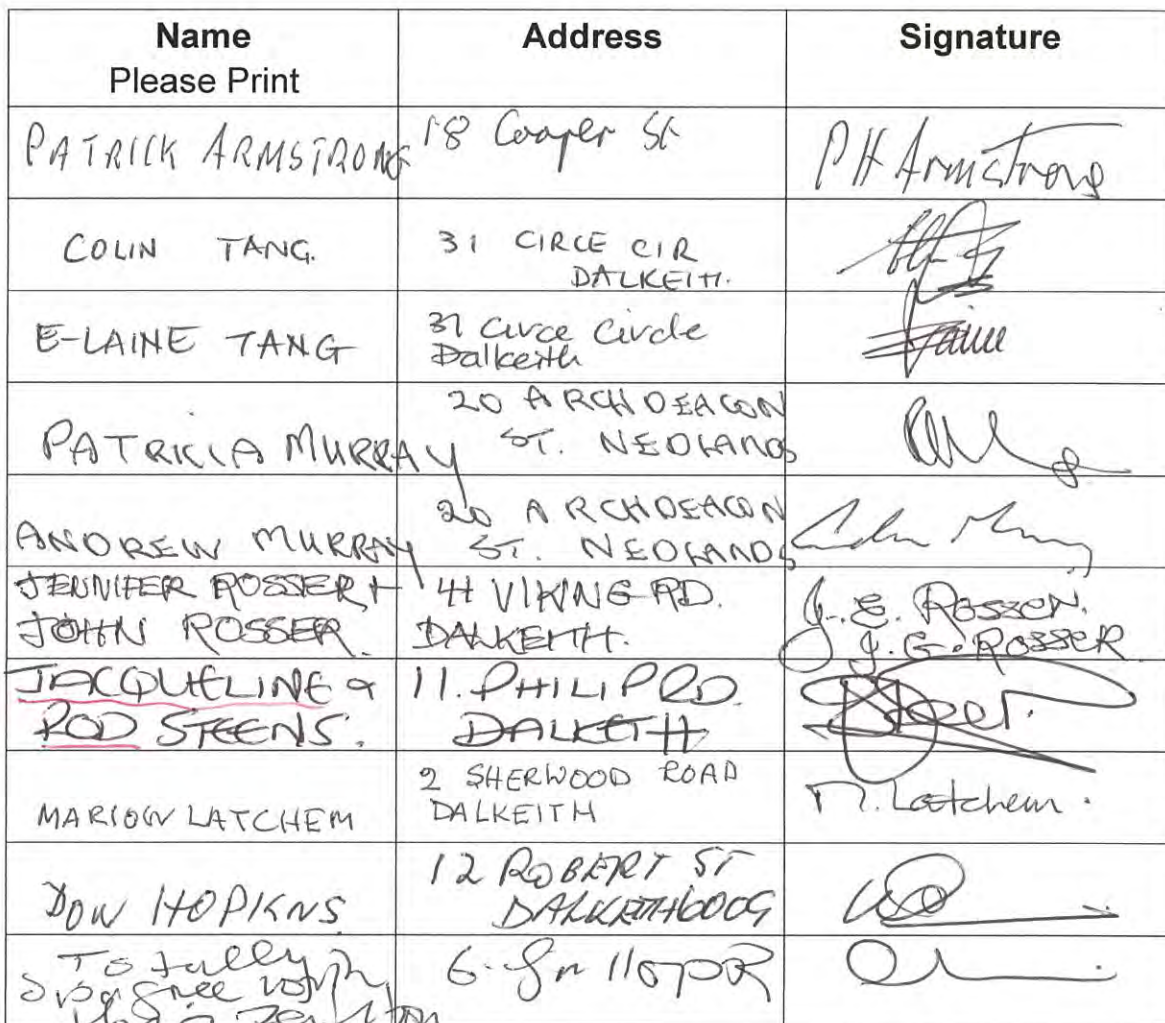 Name
Please Print
Address
Signature
PATRICK ARMSTRONG
18 Cooper St
PH Armstrong
COLIN TANG.
31 CIRCE CIR
DALKEITH.
E-LAINE TANG
31 Circe Circle
Dalkeith
PATRICIA MURRAY
20 ARCHDEACON
ST. NEDLANDS
ANDREW MURRAY
20 ARCHDEACON
ST. NEDLANDS
JENNIFER ROSSER +
JOHN ROSSER.
41 VIKING RD.
DALKEITH.
J. E. Rosser.
J. G. ROSSER
JACQUELINE &
ROD STEENS.
11. PHILIP RD.
DALKEITH
MARION LATCHEM
2 SHERWOOD ROAD
DALKEITH
M. Latchem.
DON HOPKINS
12 ROBERT ST
DALKEITH 6009
Totally
disagree with
6.